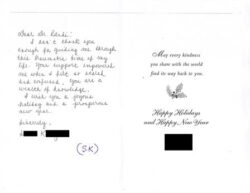 Dear Dr.
I can't thank you
enough for guiding me through
this traumatic time of my
life. Your support empowered
me when I felt so scared
and confused. You are a
wealth of knowledge.
I wish you a joyous
holiday and a prosperous
new year.
Sincerely,
K
(SK)
May every kindness
you share with the world
find its way back to you.
Happy Holidays
and Happy New Year